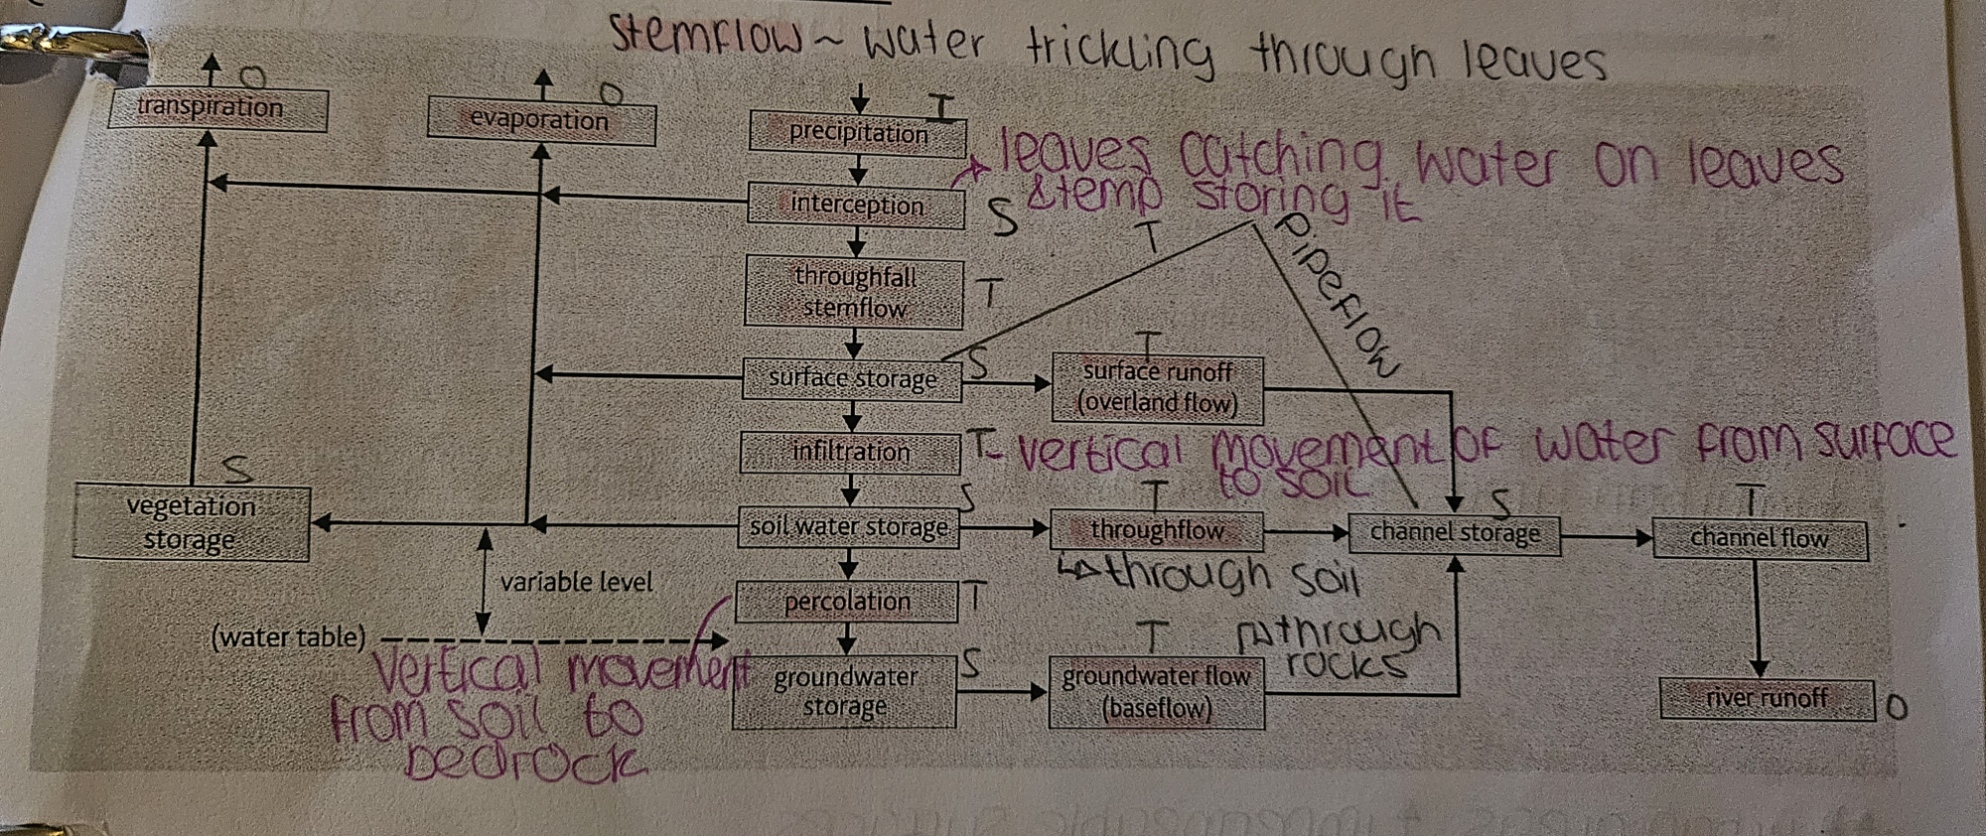 stemflow ~ water trickling through leaves
O
transpiration
O
evaporation
I
precipitation
leaves catching water on leaves
& temp storing it
interception
S
T
pipeflow
throughfall
stemflow
T
S
surface storage
T
surface runoff
(overland flow)
infiltration
T - vertical movement of water from surface
to soil
S
vegetation
storage
S
soil water storage
T
throughflow
S
channel storage
T
channel flow
through soil
variable level
percolation
T
(water table)
vertical movement
from soil to
bedrock
groundwater
storage
S
T
through
rocks
groundwater flow
(baseflow)
river runoff
O